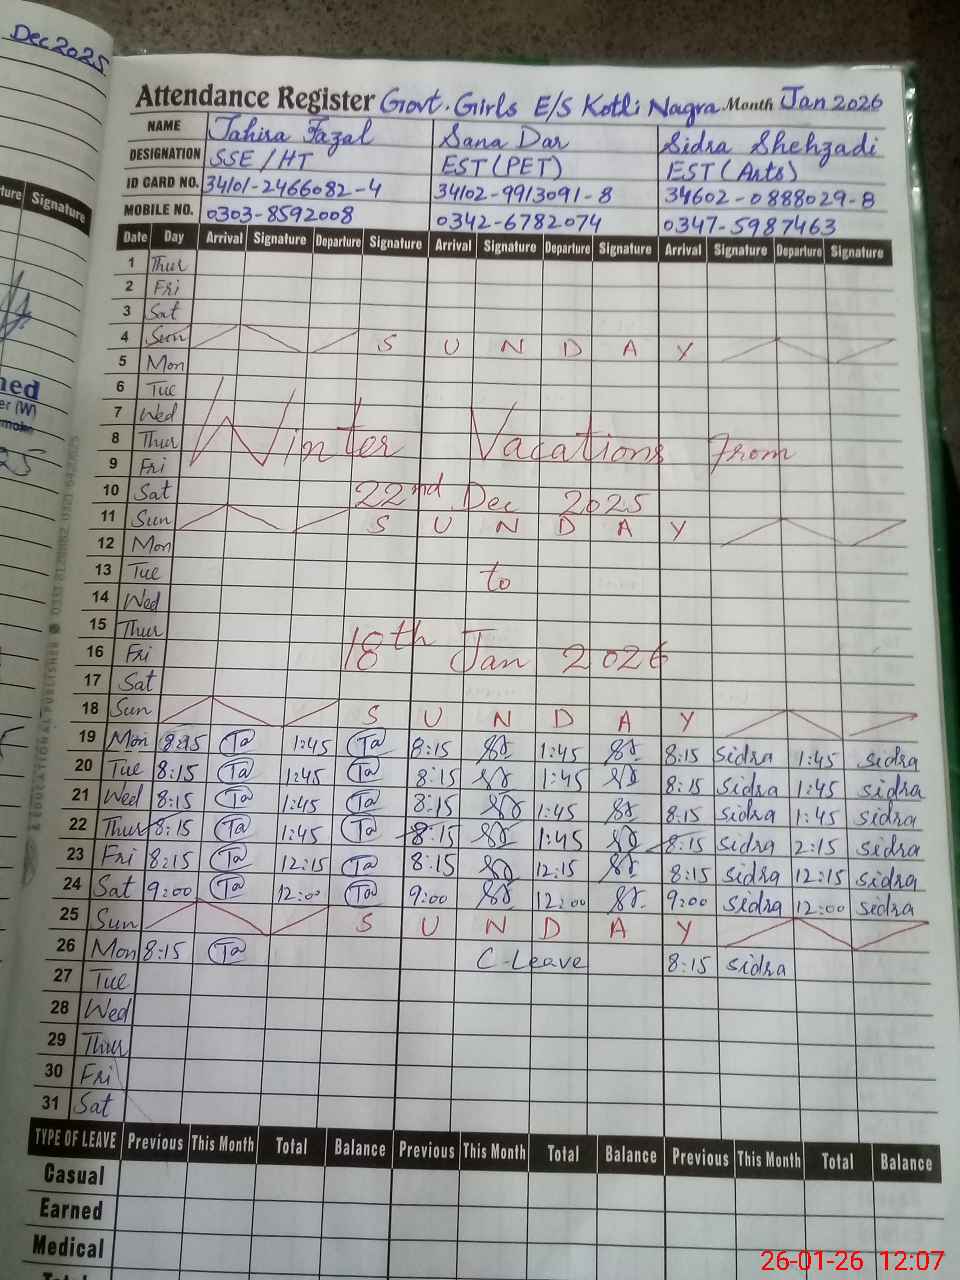 Dec 2025
Attendance Register Govt. Girls E/S Kotli Nagra Month Jan 2026
NAME Tahira Fazal Sana Dar Sidra Shehzadi
DESIGNATION SSE/HT EST(PET) EST(Arts)
ID CARD NO. 34101-2466082-4 34102-9913091-8 34602-0888029-8
MOBILE NO. 0303-8592008 0342-6782074 0347-5987463
Signature
Date Day Arrival Signature Departure Signature Arrival Signature Departure Signature Arrival Signature Departure Signature
1 Thur
2 Fri
3 Sat
4 Sun S U N D A Y
5 Mon
6 Tue
7 Wed
8 Thur Winter Vacations From
9 Fri
10 Sat 22nd Dec 2025
11 Sun S U N D A Y
12 Mon
13 Tue to
14 Wed
15 Thur
16 Fri 18th Jan 2026
17 Sat
18 Sun S U N D A Y
19 Mon 8:15 Ta 1:45 Ta 8:15 1:45 8:15 Sidra 1:45 sidra
20 Tue 8:15 Ta 1:45 Ta 8:15 1:45 8:15 Sidra 1:45 sidra
21 Wed 8:15 Ta 1:45 Ta 8:15 1:45 8:15 Sidra 1:45 sidra
22 Thur 8:15 Ta 1:45 Ta 8:15 1:45 8:15 Sidra 2:15 sidra
23 Fri 8:15 Ta 12:15 Ta 8:15 12:15 8:15 Sidra 12:15 sidra
24 Sat 9:00 Ta 12:00 Ta 9:00 12:00 9:00 Sidra 12:00 sidra
25 Sun S U N D A Y
26 Mon 8:15 Ta C-Leave 8:15 sidra
27 Tue
28 Wed
29 Thur
30 Fri
31 Sat
TYPE OF LEAVE Previous This Month Total Balance Previous This Month Total Balance Previous This Month Total Balance
Casual
Earned
Medical
26-01-26 12:07